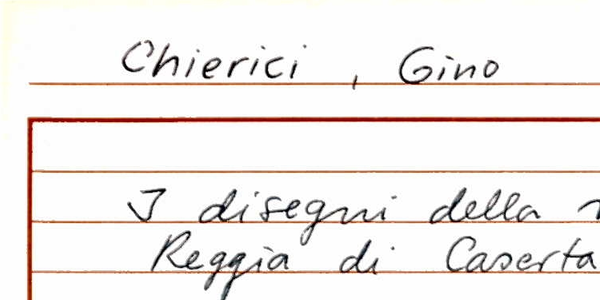 Chierici, Gino
I disegni della
Reggia di Caserta